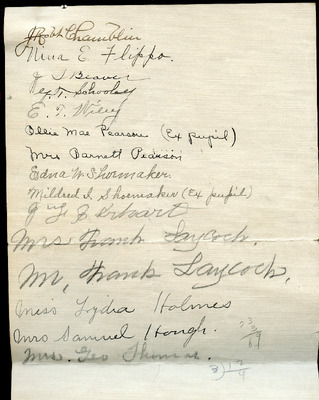 J Robt Chamblin
Nina E. Flippo.
J T Beaver
T. Schooley
E. T. Wiley
Ollie Mae Pearson (Ex pupil)
Mrs Barnett Pearson
Edna W Shoemaker.
Mildred I. Shoemaker (Ex pupil)
Mrs Frank Laycock.
Mr, Frank Laycock,
Miss Lydia Holmes
Mrs Samuel Hough.
Mrs. Geo Thomas.